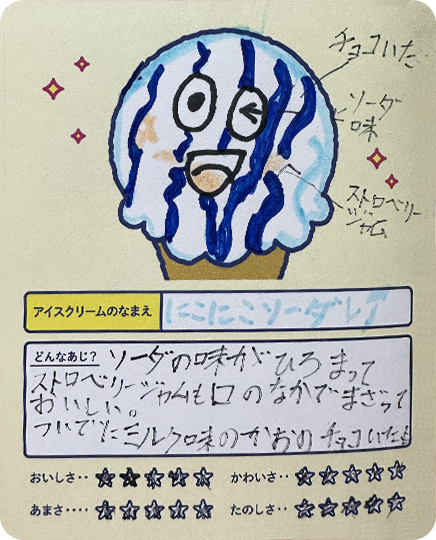 チョコいた
ソーダ
味
ストロベリー
ジャム
アイスクリームのなまえ
にこにこソーダ
どんなあじ?
ソーダの味がひろまって
ストロベリージャムも口のなかでまざって
おいしい。
ついでにミルク味のかおのチョコいたも
おいしさ‥ ☆★☆☆☆ かわいさ‥ ☆☆☆☆☆
あまさ‥‥ ☆☆☆☆☆ たのしさ‥ ☆☆☆☆☆